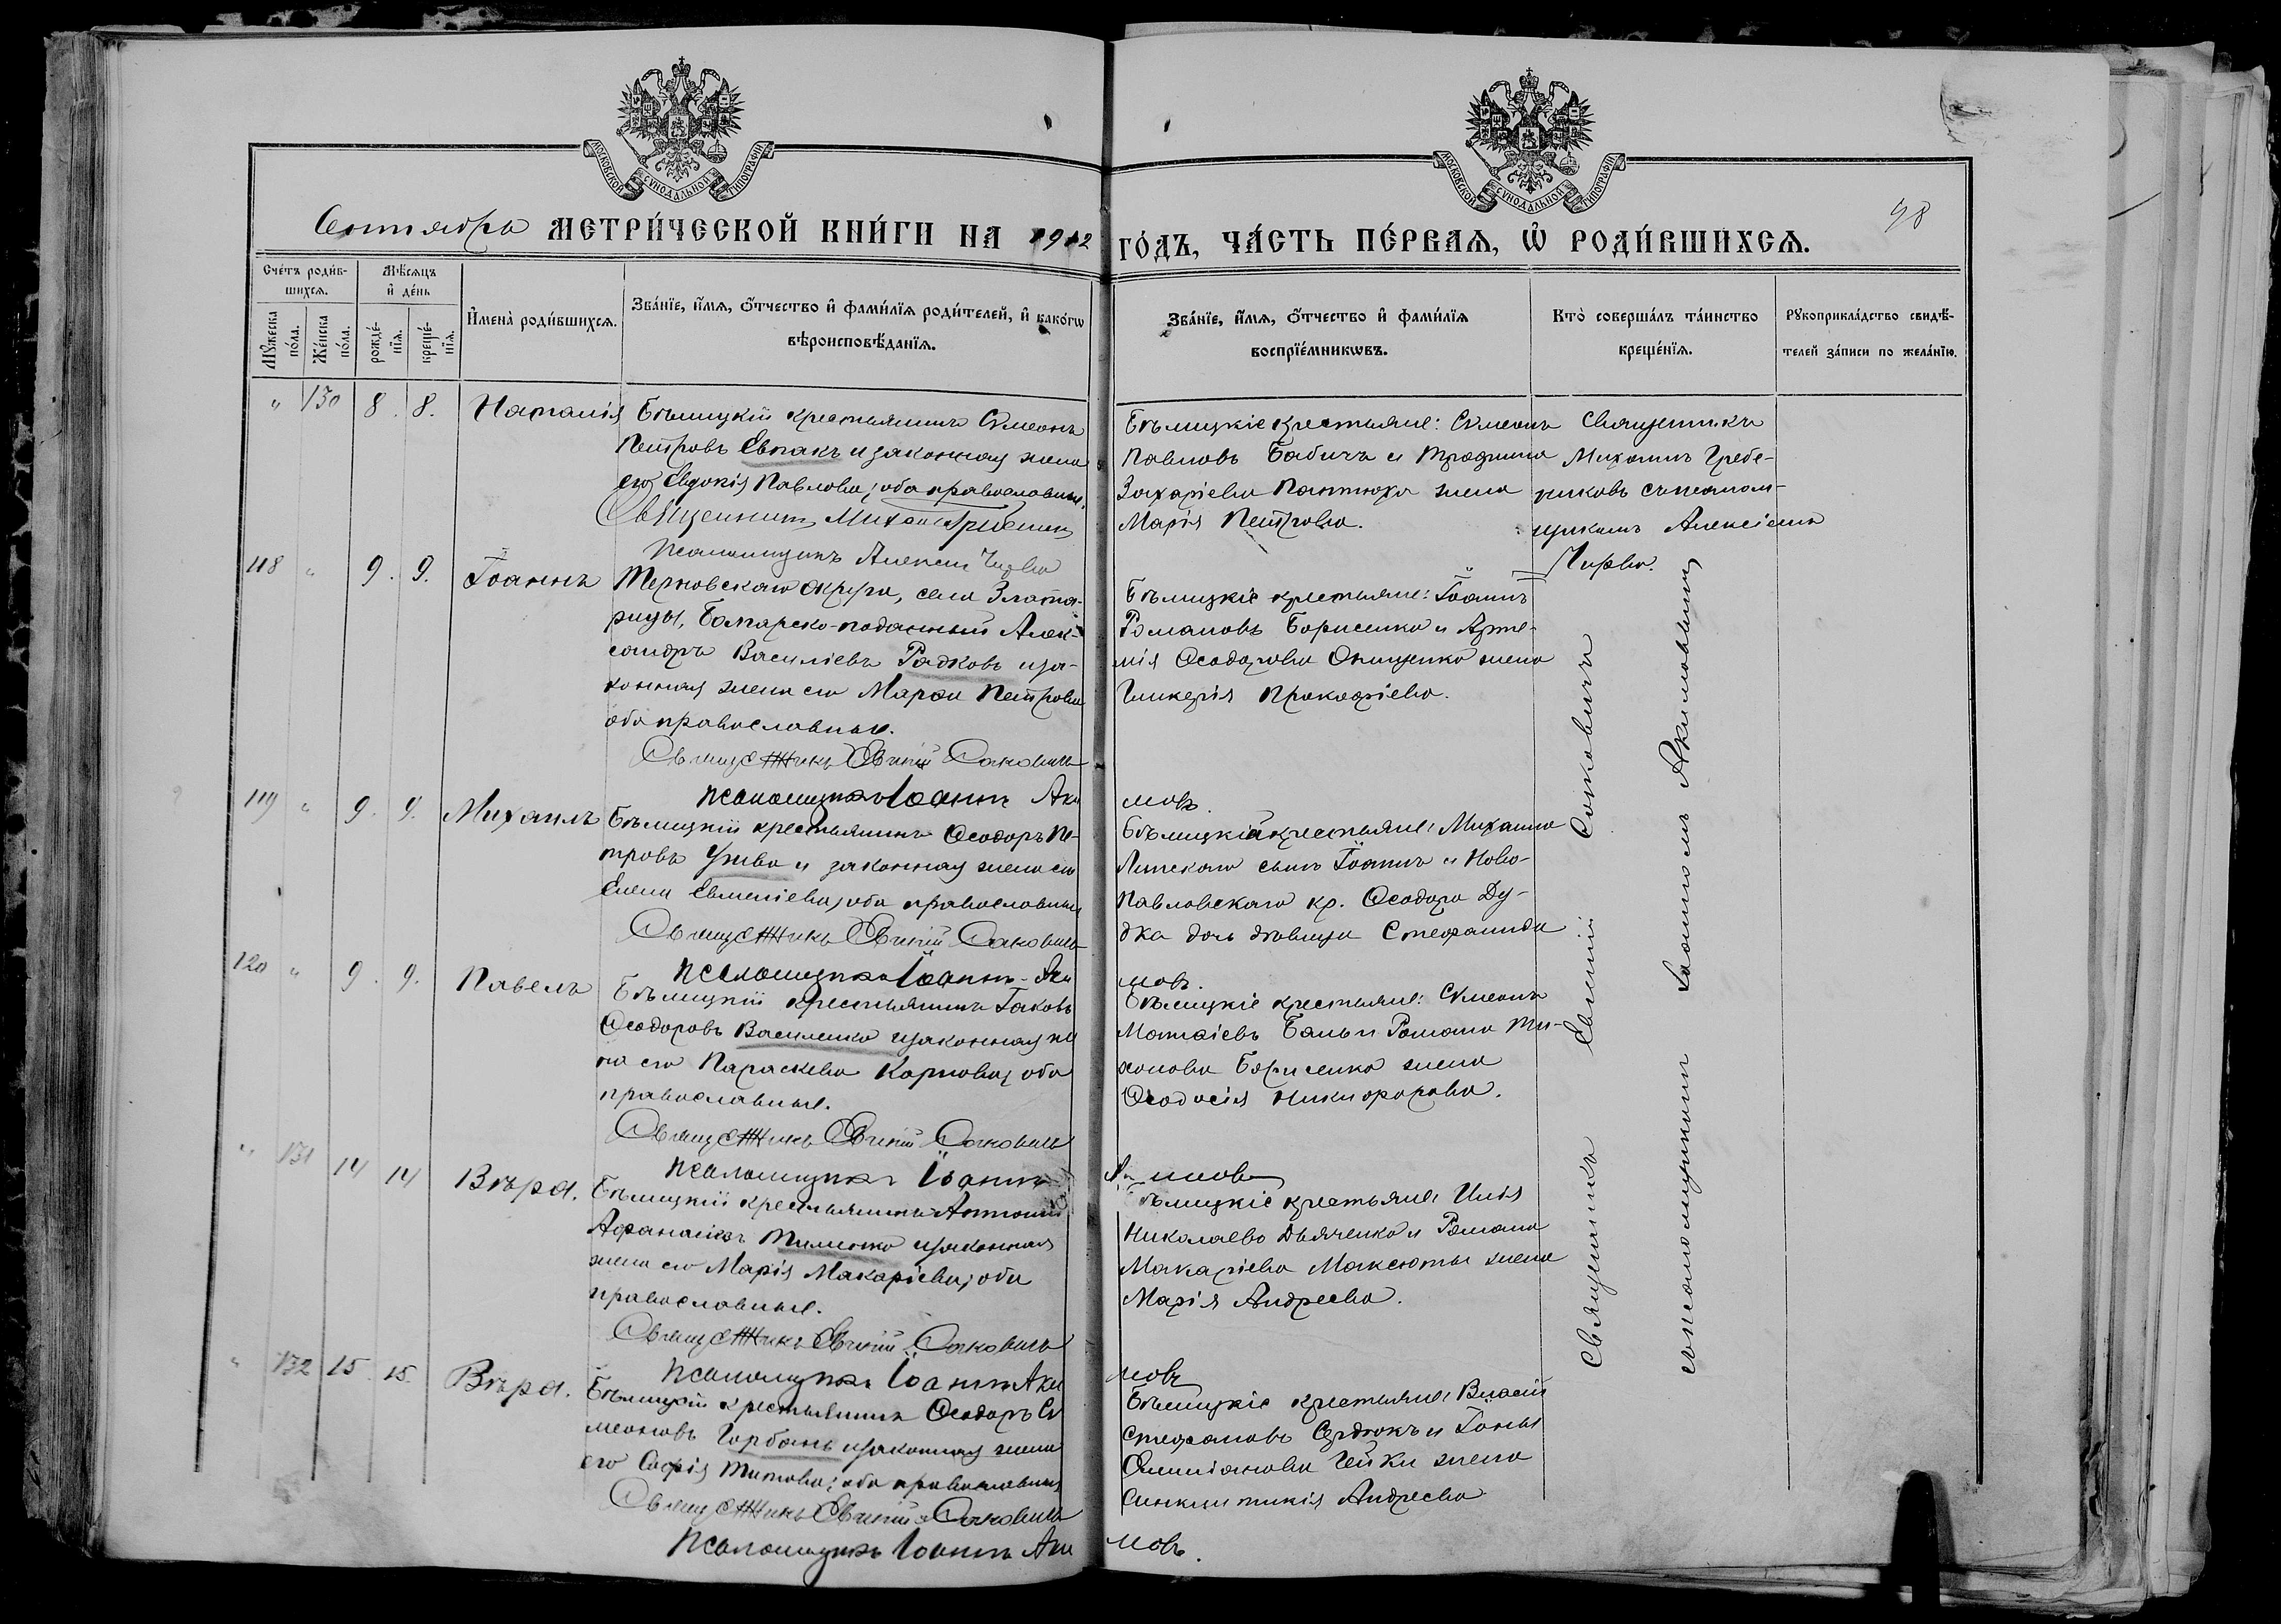 МОСКОВСКОЙ СѴНОДАЛЬНОЙ ТИПОГРАФІИ
МОСКОВСКОЙ СѴНОДАЛЬНОЙ ТИПОГРАФІИ
98
Сентября МЕТРИ́ЧЕСКОЙ КНИ́ГИ НА 1912 ГО́ДЪ, ЧА́СТЬ ПЕ́РВАѦ, Ѡ҆ РОДИ́ВШИХСѦ.
Сче́тъ роди́в-
шихсѧ.
Мѣ́сѧцъ
и҆ де́нь
Му́жеска
по́ла.
Же́нска
по́ла.
рожде́-
нїѧ.
креще́-
нїѧ.
И҆мена̀ роди́вшихсѧ.
Зва́нїе, и҆́мѧ, ѻ҆́тчество и҆ фами́лїѧ роди́телей, и҆ како́гѡ
вѣроисповѣ́данїѧ.
Зва́нїе, и҆́мѧ, ѻ҆́тчество и҆ фами́лїѧ
воспрїе́мникѡвъ.
Кто̀ соверша́лъ та́инство
креще́нїѧ.
Рукоприкла́дство свидѣ́-
телей за́писи по жела́нїю.
" 130 8. 8. Наталія
Бѣлицкій крестьянинъ Сѵмеонъ
Петровъ Евпакъ и законная жена
его Евдокія Павлова; оба православные.
Священникъ Михаилъ Гребенник
Псаломщикъ Алексій Чирва
Бѣлицкіе крестьяне: Сѵмеонъ
Павловъ Бабичъ и Трофима
Захаріева Пантюха жена
Марія Петрова.
Священникъ
Михаилъ Гребе-
никовъ съ псалом-
щикомъ Алексіемъ
Чирва.
118 " 9. 9. Іоаннъ
Терновскаго округа, села Злата-
рицы, Болгарско-поданный Алек-
сандръ Василіевъ Радковъ и за-
конная жена его Марфа Петрова
оба православные.
Священникъ Евгеній Саковичъ
Псаломщикъ Іоаннъ Акимовъ.
Бѣлицкіе крестьяне: Іоаннъ
Романовъ Борисенко и Арте-
мія Ѳеодорова Онищенко жена
Гликерія Прокофіева.
119 " 9. 9. Михаилъ
Бѣлицкій крестьянинъ Ѳеодоръ Пе-
тровъ Ужва и законная жена его
Елена Евменіева, оба православные
Священникъ Евгеній Саковичъ
Псаломщикъ Іоаннъ Акимовъ.
Бѣлицкій крестьяне: Михаила
Липскаго сынъ Іоаннъ и Ново-
Павловскаго кр. Ѳеодора Ду-
дка дочь дѣвица Стефанида
120 " 9. 9. Павелъ
Бѣлицкій крестьянинъ Іаковъ
Ѳеодоровъ Василенко и законная же
на его Параскева Карпова, оба
православные.
Священникъ Евгеній Саковичъ
Псаломщикъ Іоаннъ Акимовъ
Бѣлицкіе крестьяне: Сѵмеонъ
Матѳіевъ Баль и Романа Ти-
хонова Борисенко жена
Ѳеодосія Никифорова.
" 131 14 14 Вѣра.
Бѣлицкій крестьянинъ Антоній
Афанасіевъ Тименко и законная
жена его Марія Макаріева; оба
православные.
Священникъ Евгеній Саковичъ
Псаломщикъ Іоаннъ Акимовъ
Бѣлицкіе крестьяне: Илія
Николаевъ Дьяченко и Романа
Макаріева Максюты жена
Марія Андреева.
" 132 15. 15. Вѣра.
Бѣлицкій крестьянинъ Ѳеодоръ Сѵ
меоновъ Горбань и законная жена
его Софія Титова; оба православные
Священникъ Евгеній Саковичъ
Псаломщикъ Іоаннъ Акимовъ.
Бѣлицкіе крестьяне: Власій
Стефановъ Сердюкъ и Іоны
Гейки жена
Синклитикія Андреева
Священникъ Евгеній Саковичъ
съ псаломщикомъ Іоанномъ Акимовымъ